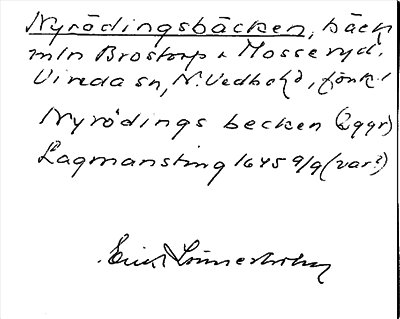 Nyrödingsbäcken, bäck
mln Brostorp & Mosseryd,
Vireda sn, N. Vedbo hd, Jönk. l
Nyrödings becken (2ggr)
Lagmansting 1645 9/9 (var?)
Erik Linnerholm